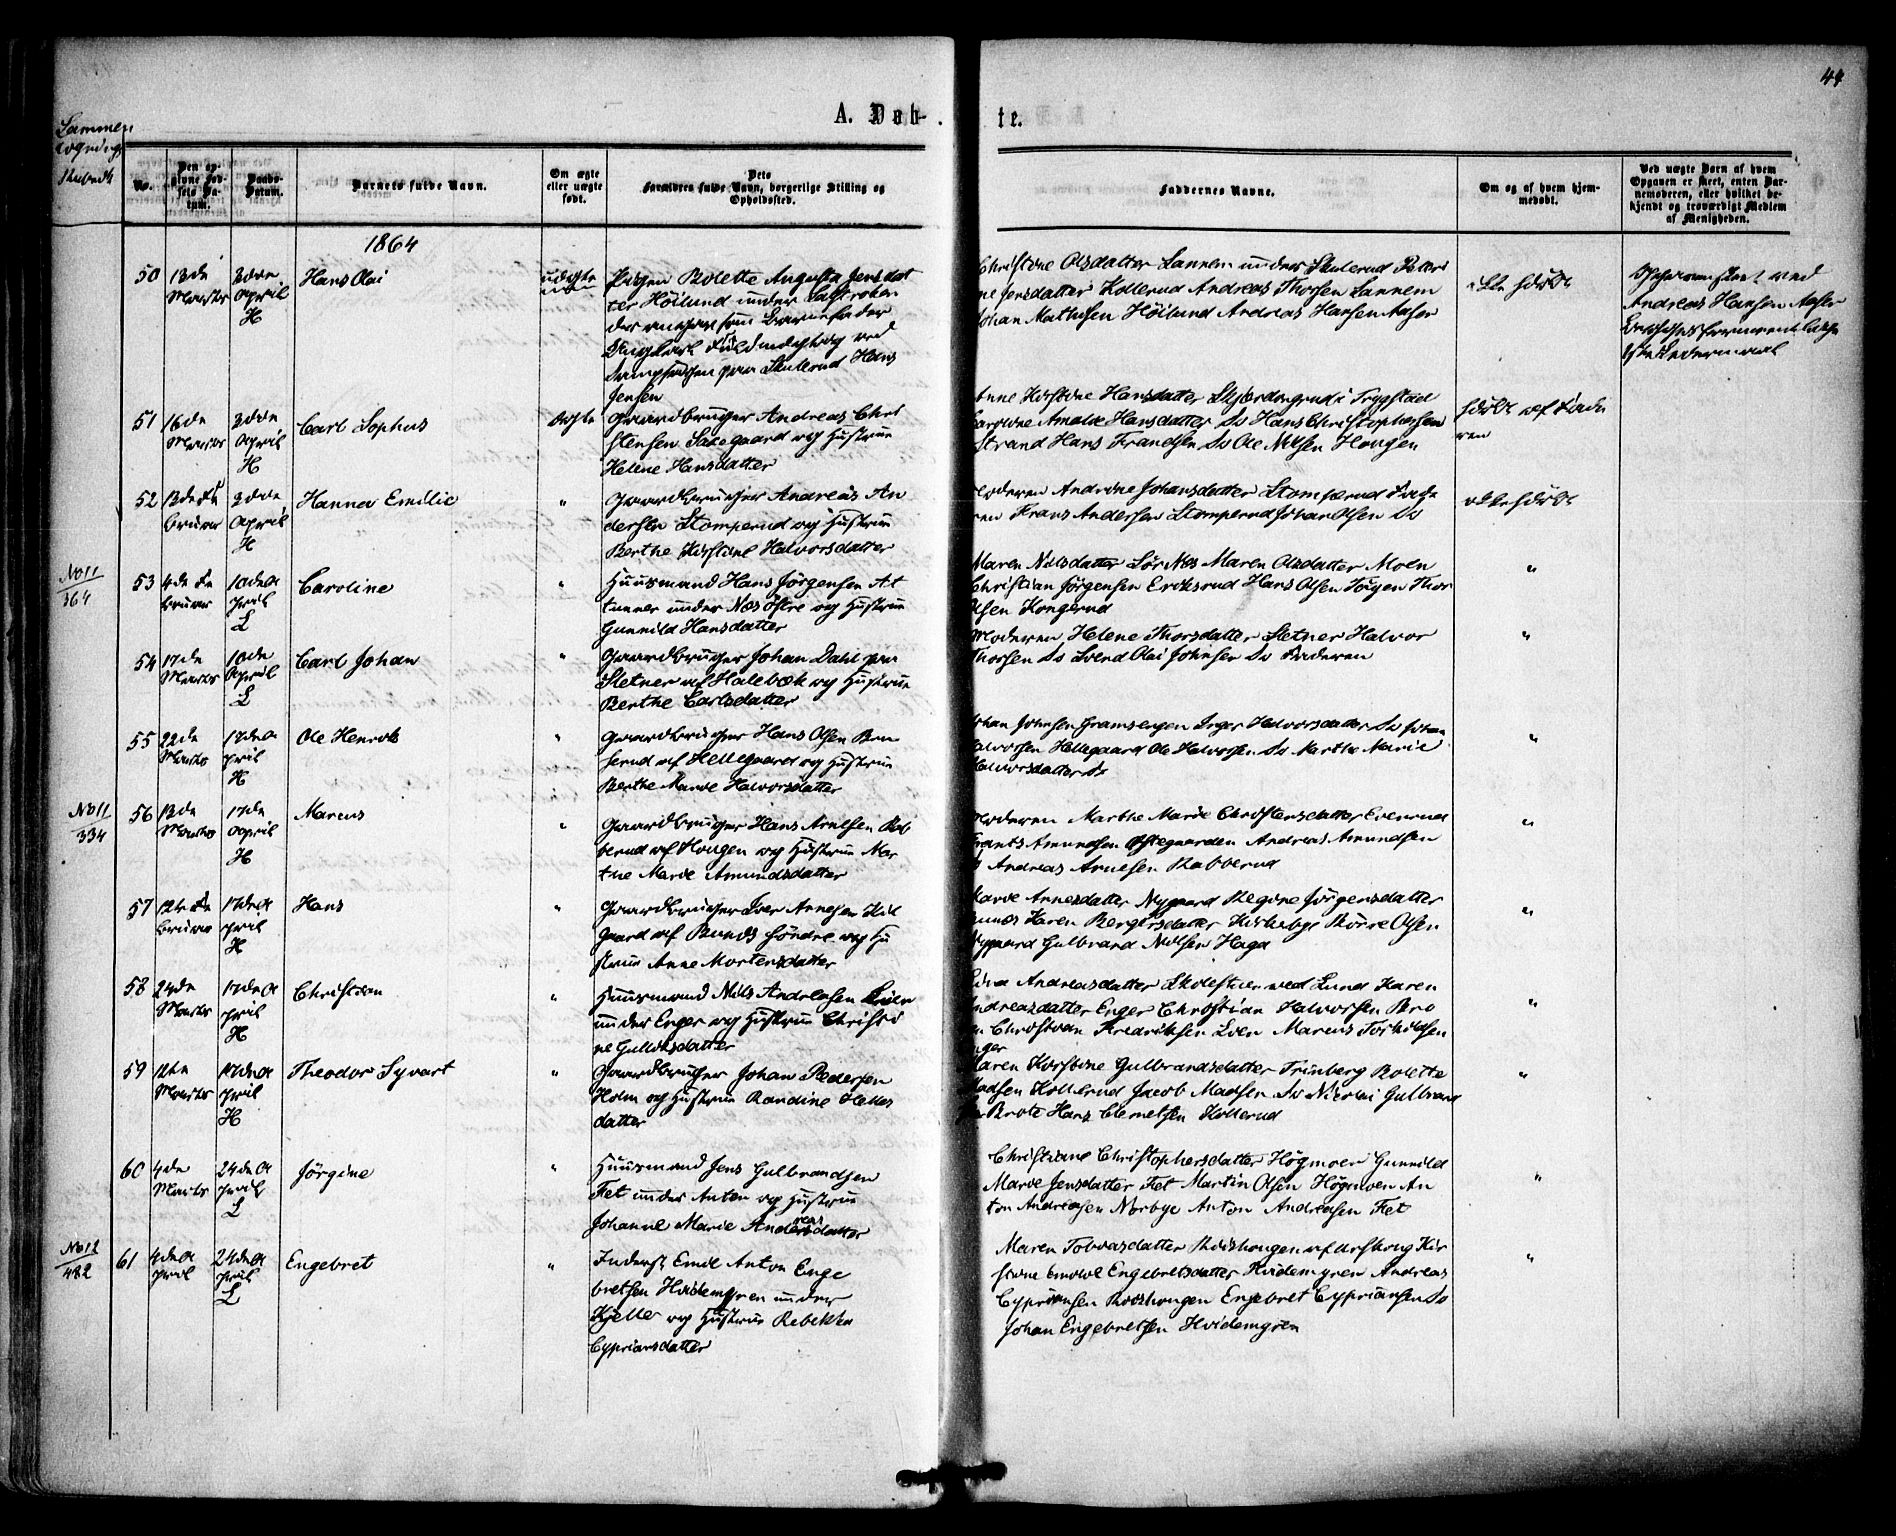 44
A. Døb-
te.
Sammen
No.
Barnets fulde Navn.
Om ægte
eller uægte
født.
Forældres fulde Navn, borgerlige Stilling og
Opholdssted.
Faddernes Navne.
Om og af hvem hjem-
medøbt.
Ved uægte Børn af hvem
Opgaven er skeet, enten Bar-
nemoderen, eller hvilket be-
kjendt og troværdigt Medlem
af Menigheden.
1864
50
13de
Marts
3die
April
H
Hans Olai
uægte
Pigen Bolette Augusta Jensdat
ter Höilund under
der angav som Barnefader
Ungkarl
paa Skulerud Hans
Jensen
Christine Olsdatter Lannem under Skulerud Petri
ne Jensdatter Kollerud Andreas Thorsen Lannem
Johan Mathisen Höilund Andreas Hansen Aaser
ikke hdöbt
ved
Andreas Hansen Aaser
51
16de
Marts
3die
April
H
Carl Sophus
ægte
Gaardbruger Andreas Chri
stensen og Hustrue
Helene Hansdatter
Anne Kirstine Hansdatter Trygstad
Karoline Amalie Hansdatter Do Hans Christophersen
Strand Hans Frandsen Do Ole Nilsen Hougen
hdöbt af Fade
ren
52
13de Fe
bruar
3die
April
H
Hanna Emilie
"
Gaardbruger Andreas An
dersen Stomperud og Hustrue
Berthe Kirstine Halvorsdatter
Moderen Andrine Johansdatter Stomperud Fade
ren Frans Andersen Stomperud Johan Olsen Do
ikke hdöbt
No 11
364
53
4de Fe
bruar
10de A
pril
L
Caroline
"
Huusmand Hans Jörgensen At
tunner under Næs Östre og Hustrue
Gunnild Hansdatter
Maren Nilsdatter Sör Næs Maren Olsdatter Moen
Christian Jörgensen Eriksrud Hans Olsen Thor
Olsen Kongerud
"
54
17de
Marts
10de
April
L
Carl Johan
"
Gaardbruger Johan Dahl paa
Sletner af Halebæk og Hustrue
Berthe Carlsdatter
Moderen Helene Thorsdatter Sletner Halvor
Thorsen Do Svend Olai Johnsen Do Faderen
"
55
22de
Marts
17de A
pril
H
Ole Henrik
"
Gaardbruger Hans Olsen
af Hellegaard og Hustrue
Berthe Marie Halvorsdatter
Johan Johnsen Gramsengen Inger Halvorsdatter Do Johan
Halvorsen Hellegaard Ole Halvorsen Do Marthe Marie
Halvorsdatter Do
"
No 11
334
56
13de
Marts
17de
April
H
Marius
"
Gaardbruger Hans Arnesen Rab
berud af Hougen og Hustrue Mar
the Marie Amundsdatter
Moderen Marthe Marie Christensdatter Evenrud
Frants Amundsen Östegaarden Andreas Amundsen
Do Andreas Arnesen Rabberud
"
57
12te Fe
bruar
17de A
pril
H
Hans
"
Gaardbruger Iver Arnesen Kil
gaard af Bunæs söndre og Hu
strue Anne Mortensdatter
Marie Arnesdatter Nygaard Regine Jörgensdatter
Bunæs Karen Bergersdatter Kirkebye Börre Olsen
Nygaard Gulbrand Nilsen Haga
"
58
24de
Marts
17de A
pril
H
Christian
"
Huusmand Nils Andreasen
under Enger og Hustrue Christi
ne Gulliksdatter
Lina Andreasdatter Skolestuen ved Lund Karen
Andreasdatter Enger Christian Halvorsen Bro
Christian Fredriksen Marius Torkildsen
Enger
"
59
12te
Marts
17de A
pril
H
Theodor Syvart
"
Gaardbruger Johan Pedersen
Holm og Hustrue Randine Helles
datter
Maren Kirstine Gulbrandsdatter Trinberg Bolette
Madsen Kollerud Jacob Madsen Do Nicolai Gulbrand
Brote Hans Clemetsen Kollerud
"
60
4de
Marts
24de A
pril
L
Jörgine
"
Huusmand Jens Gulbrandsen
Fiet under Anten og Hustrue
Johanne Marie Andreasdatter
Christiane Christophersdatter Högmoen Gunnild
Marie Jensdatter Fiet Martin Olsen Högmoen An
ton Andreasen Norbye Anton Andreasen Fiet
"
No 12
482
61
4de A
pril
24de A
pril
L
Engebret
"
Inderst Emil Anton Enge
bretsen Hvidemyren under
Kjelle og Hustrue Rebekka
Cypriansdatter
Maren Tobiasdatter af Urskoug Kir
stine Emilie Engebretsdatter Hvidemyren Andreas
Cypriansen Engebret Cypriansen Do
Johan Engebretsen Hvidemyren
"